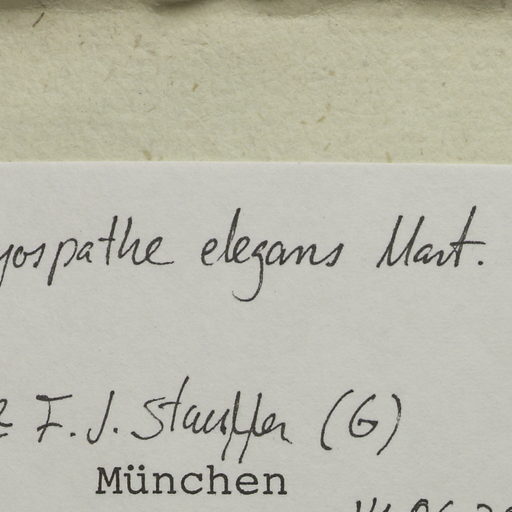 yospathe elegans Mart.
& F. J. Stauffer (G)
München
14.06.20